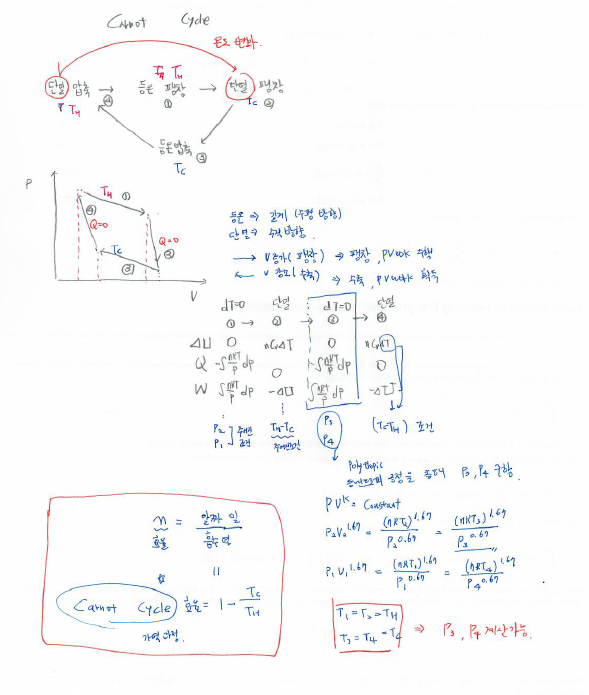 Carnot Cycle
온도 변화.
단열 압축 → 등온 팽창 → 단열 팽창
④ ① ②
T_H T_H T_C
등온압축 ③
T_C
P
T_H ①
④ Q=0
Q=0 ②
T_C
③
V
등온 ⇒ 길게 (수평 방향)
단열 ⇒ 수직 방향.
→ V증가 (팽창) ⇒ 팽창, PV work 수행
← V 감소 (수축) ⇒ 수축, PV work 획득
dT=0 단열 dT=0 단열
① → ② → ③ → ④
ΔU 0 nCvΔT 0 nCvdT
Q -∫nRT/P dp 0 -∫nRT/P dp 0
W ∫nRT/P dp -ΔU ∫nRT/P dp -ΔU
P2 P1 ] 주어진 조건
T_H-T_C 주어진조건
P3 P4
(T_C=T_H) 조건
Polytropic
공정을 통해 P3, P4 구함.
PV^k = Constant
P2V2^1.67 = (nRT2)^1.67 / P2^0.67 = (nRT3)^1.67 / P3^0.67
P1V1^1.67 = (nRT1)^1.67 / P1^0.67 = (nRT4)^1.67 / P4^0.67
T1=T2=T_H
T3=T4=T_C
⇒ P3, P4 계산가능.
η = 알짜 일 / 흡수 열
효율
Carnot Cycle 효율 = 1 - T_C / T_H
가역 과정.